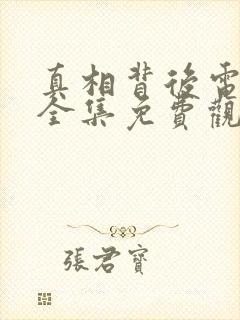 真相背後電
全集免費觀
張君寶